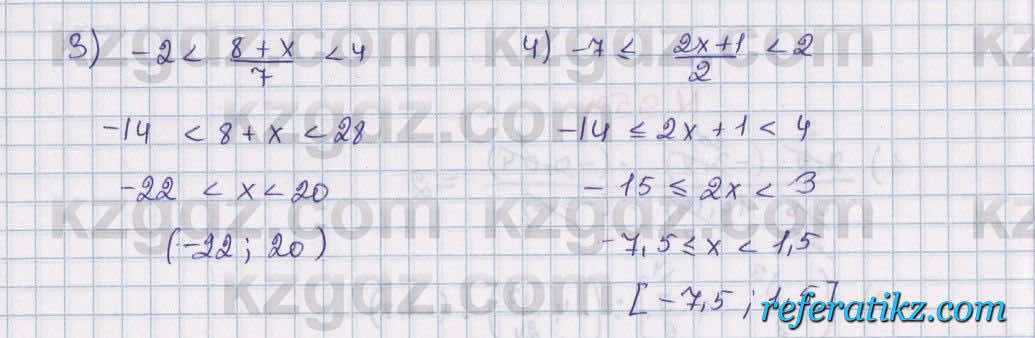 3) -2 < (8 + x)/7 < 4
-14 < 8 + x < 28
-22 < x < 20
(-22; 20)
4) -7 ≤ (2x+1)/2 < 2
-14 ≤ 2x + 1 < 4
-15 ≤ 2x < 3
-7,5 ≤ x < 1,5
[-7,5; 1,5]
kzgdz.com
kzgdz.com
kzgdz.com
kzgdz.com
kzgdz.com
referatikz.com